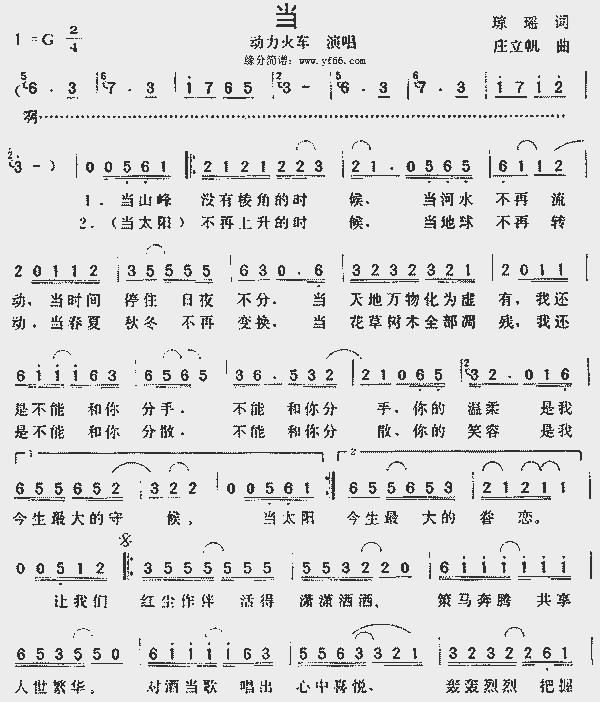 当
1=G 2/4
动力火车 演唱
琼瑶 词
庄立帆 曲
缘分简谱：www.yf66.com
(6·3 7·3 1765 3- 6·3 7·3 1712
啊
3-) 00561 2121223 21·0565 6112
1.当山峰 没有棱角的时 候、 当河水 不再 流
2.(当太阳) 不再上升的时 候、 当地球 不再 转
20112 35555 630·6 3232321 2011
动、当时间 停住 日夜 不分、 当 天地万物化为虚 有，我还
动，当春夏 秋冬 不再 变换、 当 花草树木全部凋 残，我还
611163 6565 36·532 21065 32·016
是不能 和你 分手， 不能 和你分 手、你的 温柔 是我
是不能 和你 分散， 不能 和你分 散、你的 笑容 是我
1 2
6556552 322 00561 5655653 21211
今生最大的守 候， 当太阳 今生最 大的 眷恋。
00512 3555555 553220 611111
让我们 红尘作伴 活得 潇潇洒洒、 策马奔腾 共享
653550 6111163 5563321 3232261
人世繁华。 对酒当歌 唱出 心中喜悦、 轰轰烈烈 把握